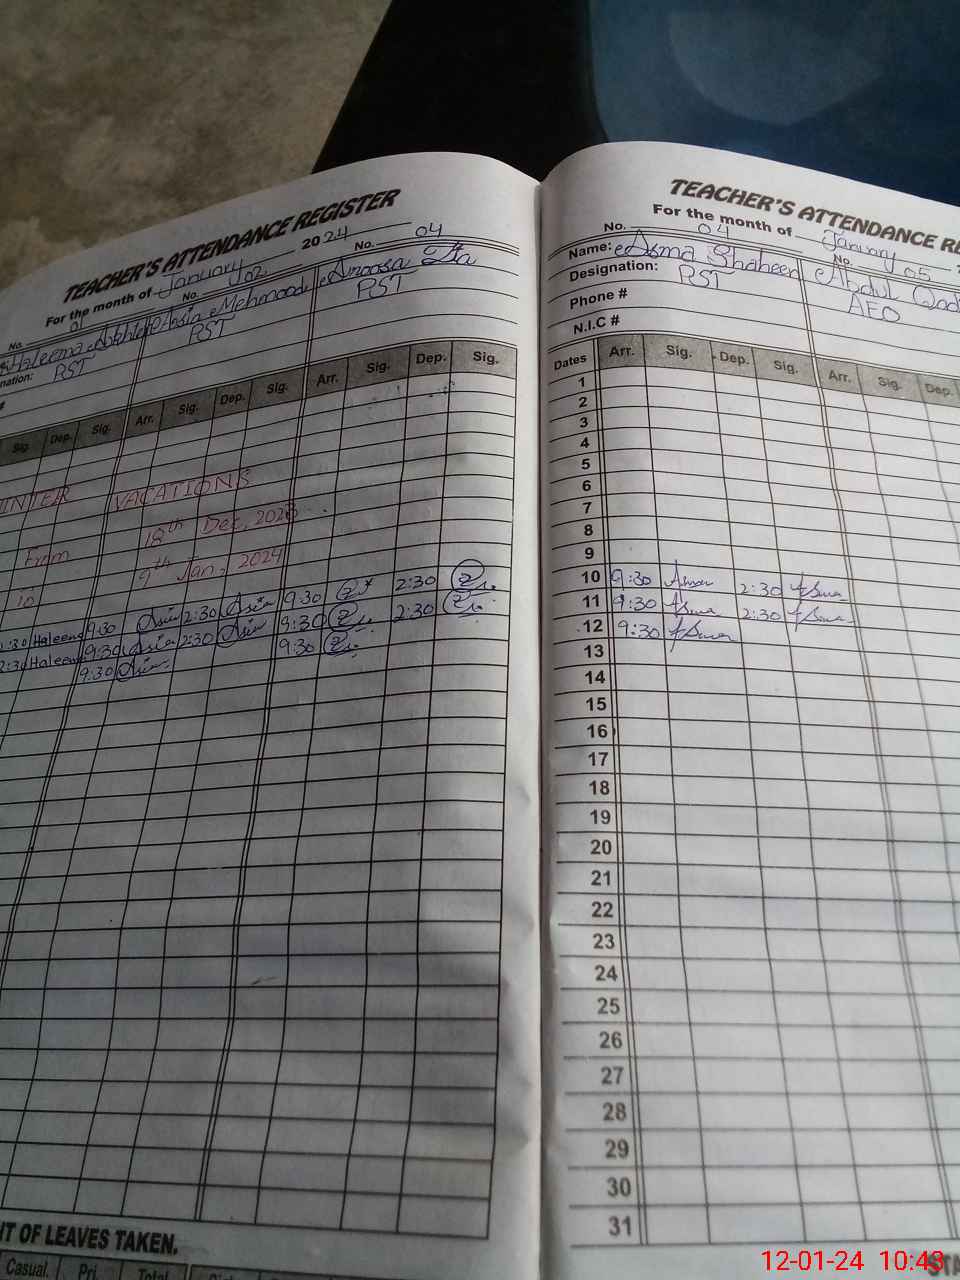 TEACHER'S ATTENDANCE REGISTER
For the month of January 2024
No. 01 No. 02 No. 04
Haleema Asia Mehmood Aroosa
nation: PST PST PST
#
Sig. Dep. Sig. Arr. Sig. Dep. Sig. Arr. Sig. Dep. Sig.
INTER VACATIONS
From 18th Dec, 2023
to 9th Jan, 2024
2:30 Haleema 9:30 Asia 2:30 Asia 9:30 2:30
2:30 Haleema 9:30 Asia 2:30 Asia 9:30 2:30
9:30 Asia 9:30
T OF LEAVES TAKEN.
Casual. Pri Total
TEACHER'S ATTENDANCE RE
For the month of January
No. 04 No. 05
Name: Asma Shaheen Abdul Qad
Designation: PST AEO
Phone #
N.I.C #
Dates Arr. Sig. Dep. Sig. Arr. Sig. Dep.
1
2
3
4
5
6
7
8
9
10 9:30 Asma 2:30 Asma
11 9:30 Asma 2:30 Asma
12 9:30 Asma
13
14
15
16
17
18
19
20
21
22
23
24
25
26
27
28
29
30
31
STA
12-01-24 10:43